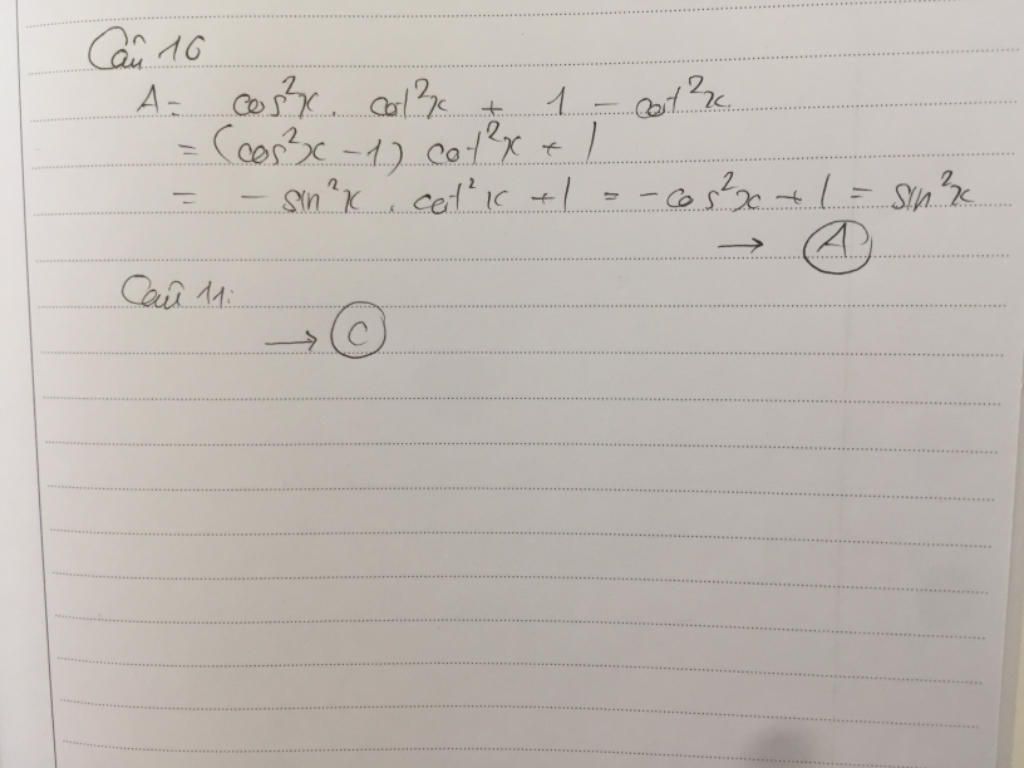 Câu 10
A = cos²x . cot²x + 1 - cot²x.
= (cos²x - 1) cot²x + 1
= - sin²x . cot²x + 1 = - cos²x + 1 = sin²x
→ A
Câu 11:
→ C